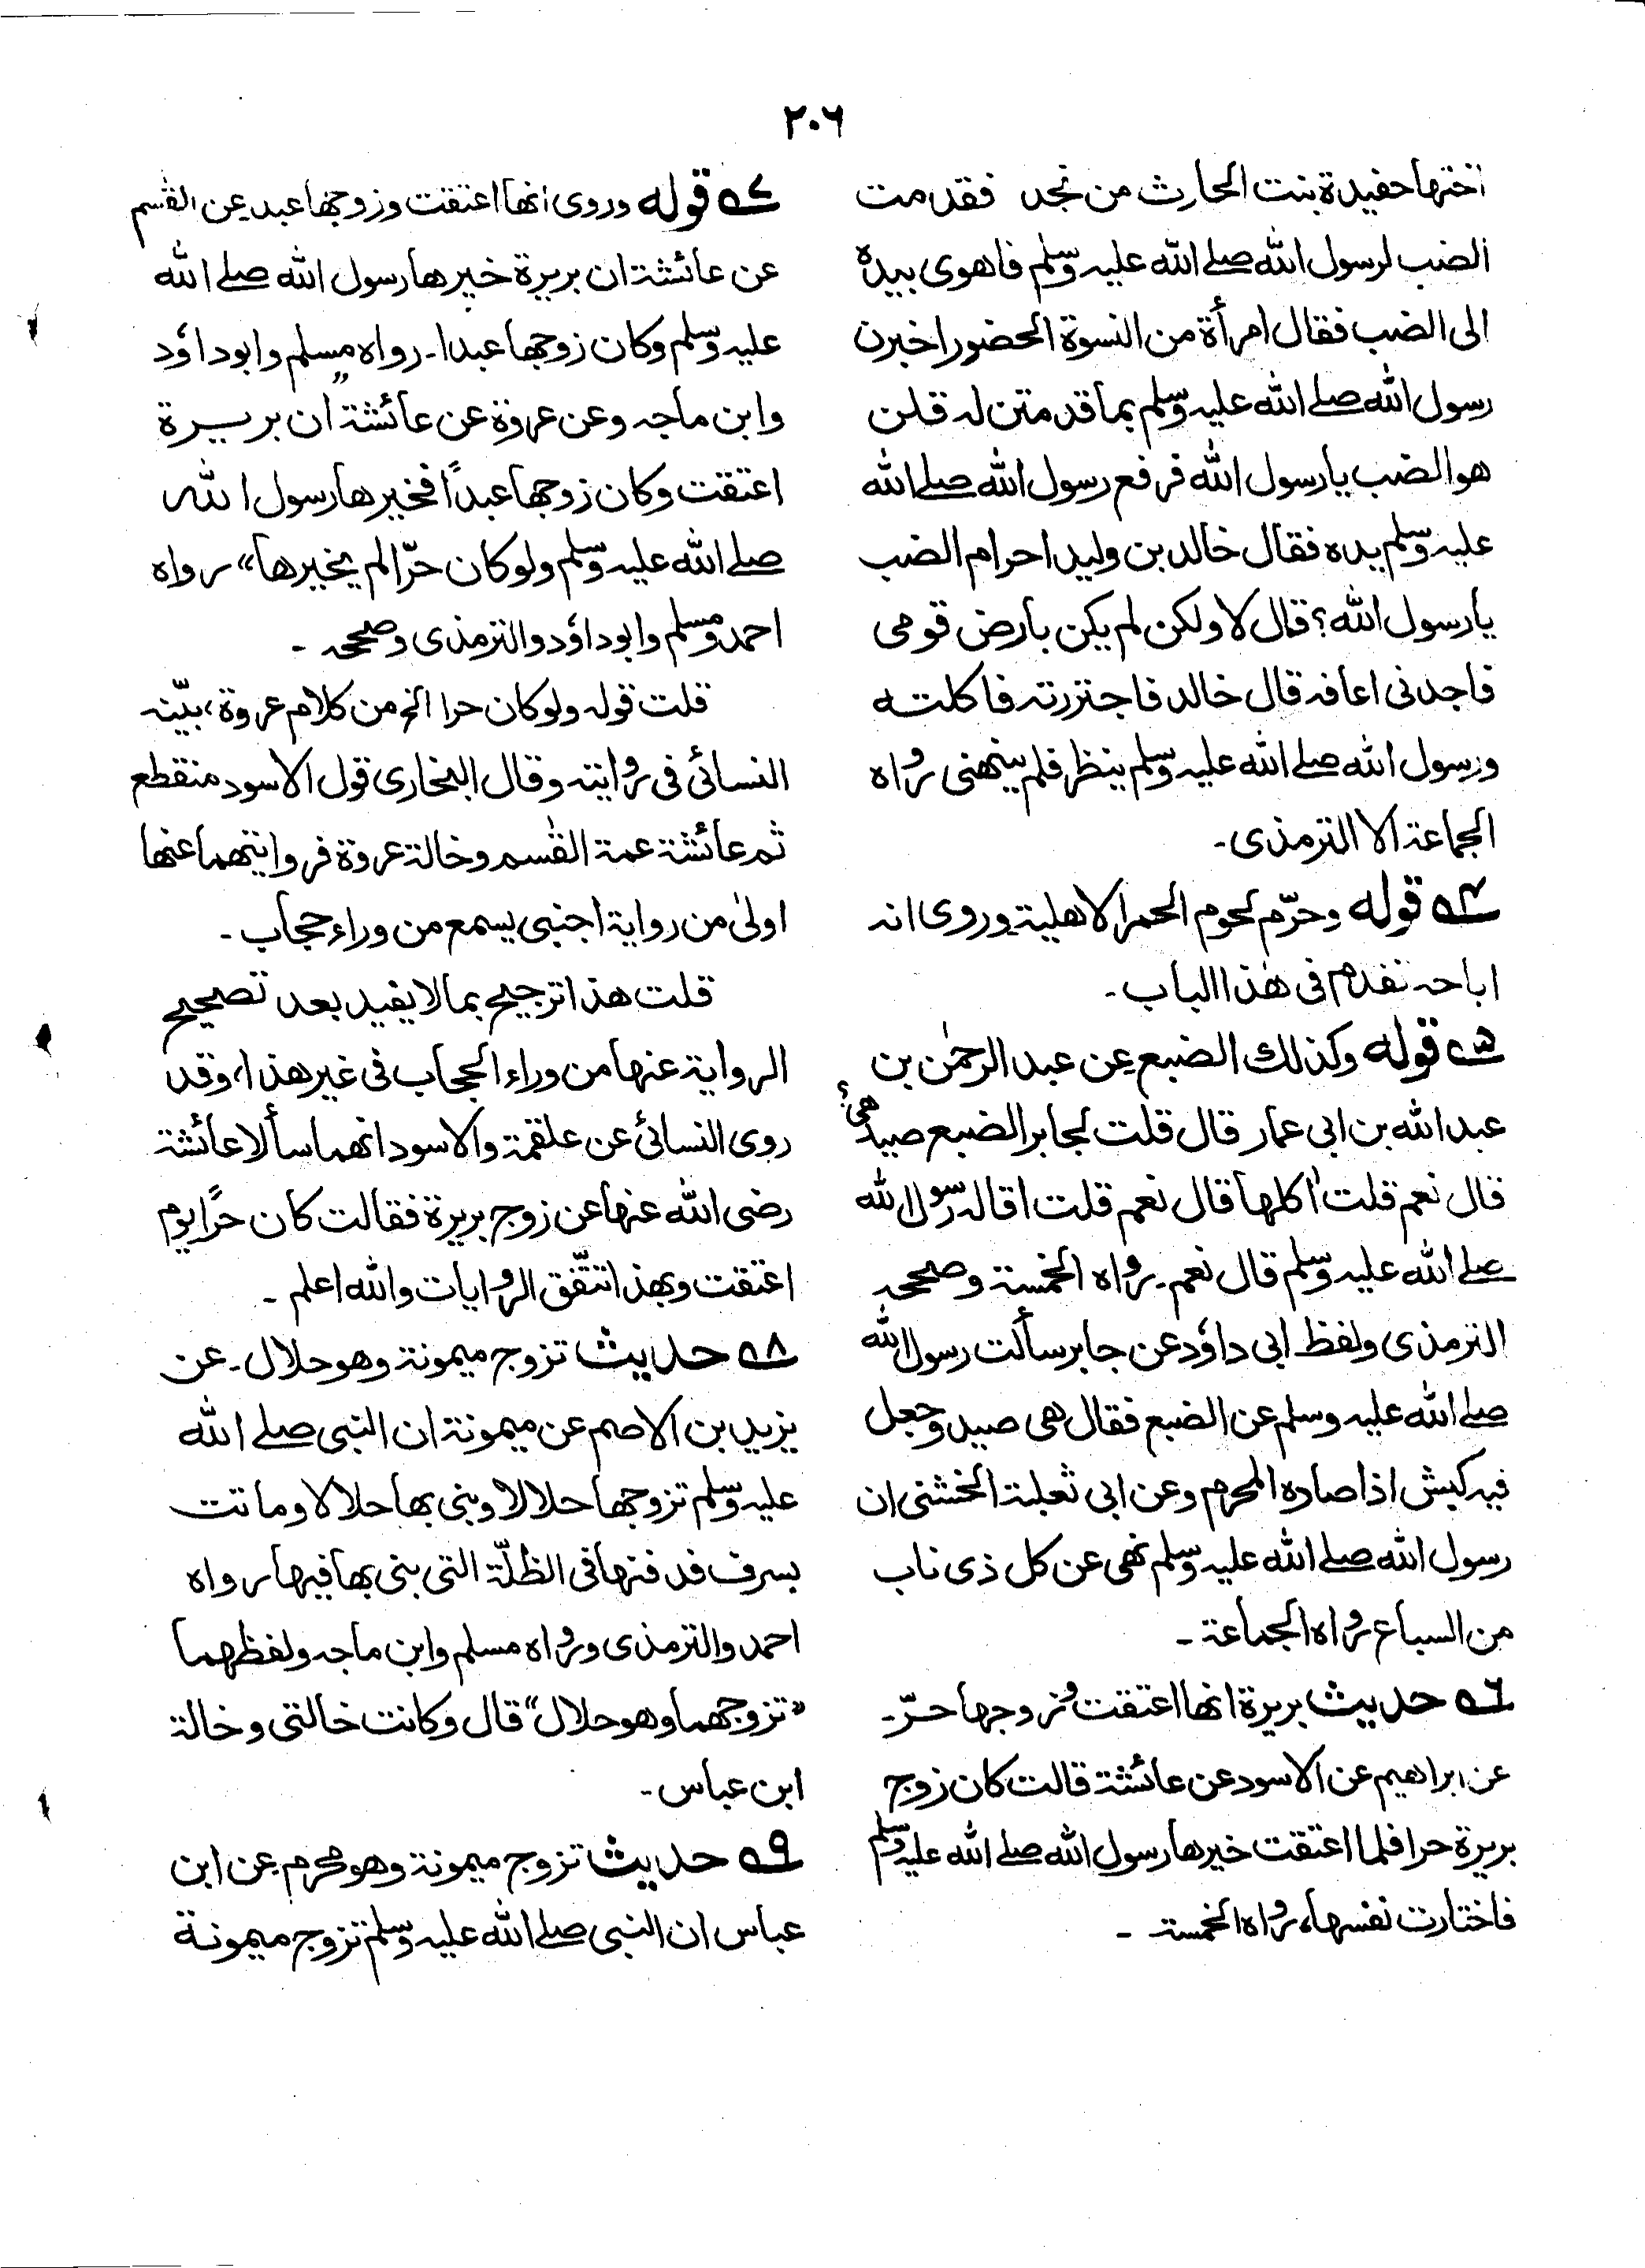 ۲۰۶
اختها حفيدة بنت الحارث من نجد فقدمت
الضب لرسول الله صلے الله عليه وسلم فاهوى بيده
الى الضب فقال امرأة من النسوة الحضور اخبرن
رسول الله صلے الله عليه وسلم بما قدمتن له قلن
هو الضب يا رسول الله فرفع رسول الله صلے الله
عليه وسلم يده فقال خالد بن وليد احرام الضب
يا رسول الله؟ قال لا ولكن لم يكن بارض قومى
فاجدنى اعافه قال خالد فاجتزرته فاكلته
ورسول الله صلے الله عليه وسلم ينظر فلم ينهنى رواه
الجماعة الا الترمذى۔
۴ قوله وحرّم لحوم الحمر الاهلية وروى انه
اباحه تقدم فى هٰذا الباب۔
۵ قوله وكذلك الضبع عن عبد الرحمٰن بن
عبد الله بن ابى عمار قال قلت لجابر الضبع صيد هى؟
قال نعم قلت اٰكلها قال نعم قلت اقاله رسول الله
صلے الله عليه وسلم قال نعم۔ رواه الخمسة وصححه
الترمذى ولفظ ابى داؤد عن جابر سألت رسول الله
صلے الله عليه وسلم عن الضبع فقال هى صيد وجعل
فيه كبش اذا صاده المحرم وعن ابى ثعلبة الخشنى ان
رسول الله صلے الله عليه وسلم نهى عن كل ذى ناب
من السباع رواه الجماعة۔
۶ حديث بريرة انها اعتقت وزوجها حرّ۔
عن ابراهيم عن الاسود عن عائشة قالت كان زوج
بريرة حرا فلما اعتقت خيرها رسول الله صلے الله عليه وسلم
فاختارت نفسها، رواه الخمسة۔
۷ قوله وروى انها اعتقت وزوجها عبد عن القٰسم
عن عائشة ان بريرة خيرها رسول الله صلے الله
عليه وسلم وكان زوجها عبدا۔ رواه مسلم وابوداؤد
وابن ماجه وعن عروة عن عائشة "ان بريرة
اعتقت وكان زوجها عبداً فخيرها رسول الله
صلے الله عليه وسلم ولو كان حرّا لم يخيرها" رواه
احمد ومسلم وابوداؤد والترمذى وصححه۔
قلت قوله ولو كان حرا الخ من كلام عروة، بيّنه
النسائى فى روايته وقال البخارى قول الاسود منقطع
ثم عائشة عمة القٰسم وخالة عروة فروايتهما عنها
اولىٰ من رواية اجنبى يسمع من وراء حجاب۔
قلت هذا ترجيح بما لا يفيد بعد تصحيح
الرواية عنها من وراء الحجاب فى غير هذا، وقد
روى النسائى عن علقمة والاسود انهما سألا عائشة
رضى الله عنها عن زوج بريرة فقالت كان حرًا يوم
اعتقت وبهذا تتّفق الروايات والله اعلم۔
۸ حديث تزوج ميمونة وهو حلال۔ عن
يزيد بن الاصم عن ميمونة ان النبى صلے الله
عليه وسلم تزوجها حلالا وبنى بها حلالا وماتت
بسرف فدفنها فى الظلّة التى بنى بها فيها رواه
احمد والترمذى ورواه مسلم وابن ماجه ولفظهما
"تزوجهما وهو حلال" قال وكانت خالتى وخالة
ابن عباس۔
۹ حديث تزوج ميمونة وهو محرم عن ابن
عباس ان النبى صلے الله عليه وسلم تزوج ميمونة